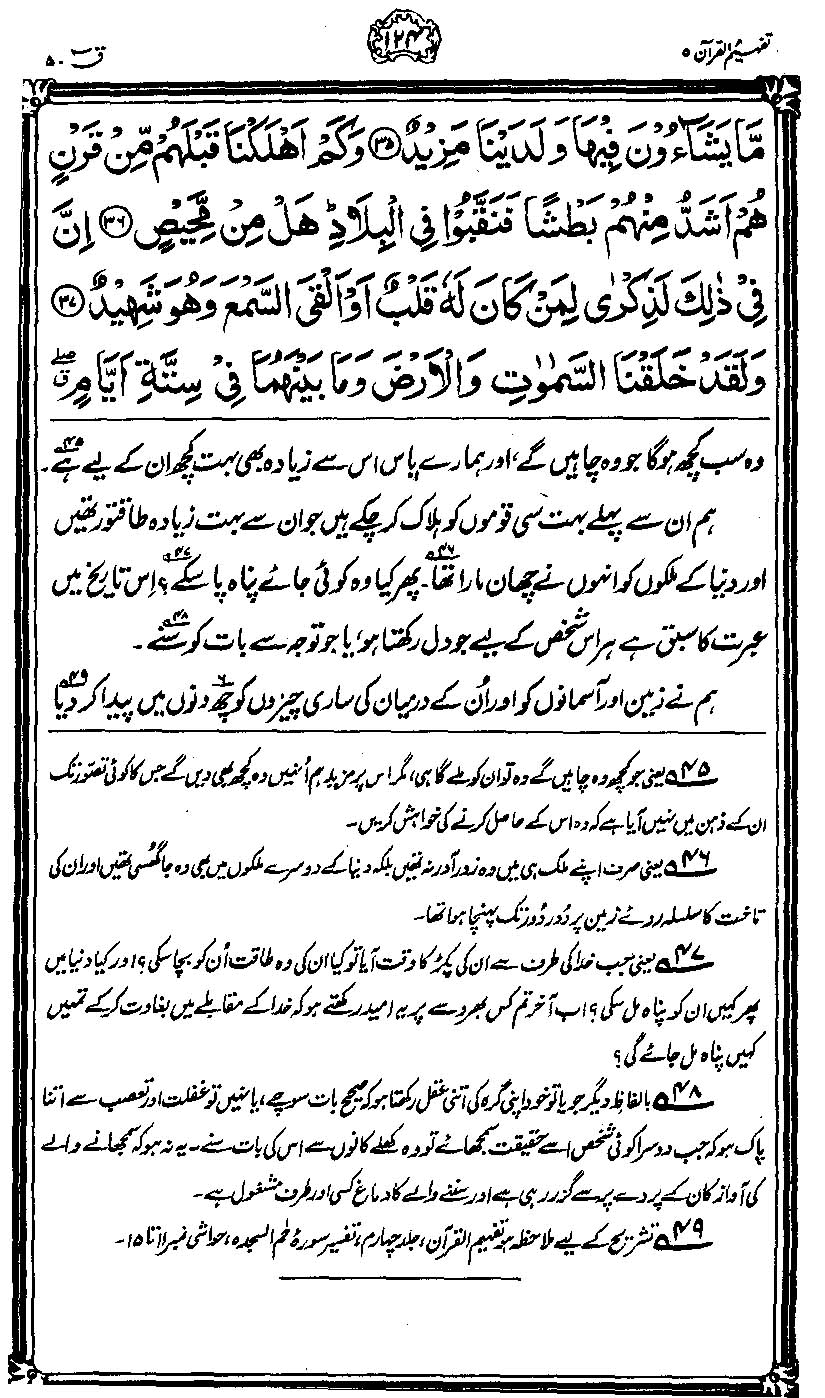 تفہیم القرآن ۵
۱۲۴
ق ۵۰
مَّا يَشَآءُوْنَ فِيْهَا وَلَدَيْنَا مَزِيْدٌ ﴿۳۵﴾ وَكَمْ اَهْلَكْنَا قَبْلَهُمْ مِّنْ قَرْنٍ
هُمْ اَشَدُّ مِنْهُمْ بَطْشًا فَنَقَّبُوْا فِي الْبِلَادِ ؕ هَلْ مِنْ مَّحِيْصٍ ﴿۳۶﴾ اِنَّ
فِيْ ذٰلِكَ لَذِكْرٰى لِمَنْ كَانَ لَهٗ قَلْبٌ اَوْ اَلْقَى السَّمْعَ وَهُوَ شَهِيْدٌ ﴿۳۷﴾
وَلَقَدْ خَلَقْنَا السَّمٰوٰتِ وَالْاَرْضَ وَمَا بَيْنَهُمَا فِيْ سِتَّةِ اَيَّامٍ ۖق
وہ سب کچھ ہوگا جو وہ چاہیں گے، اور ہمارے پاس اس سے زیادہ بھی بہت کچھ ان کے لیے ہے۴۵۔
ہم ان سے پہلے بہت سی قوموں کو ہلاک کر چکے ہیں جو ان سے بہت زیادہ طاقتور تھیں
اور دنیا کے ملکوں کو انہوں نے چھان مارا تھا۴۶۔ پھر کیا وہ کوئی جائے پناہ پا سکے۴۷؟ اِس تاریخ میں
عبرت کا سبق ہے ہر اس شخص کے لیے جو دل رکھتا ہو، یا جو توجہ سے بات کو سنے۴۸۔
ہم نے زمین اور آسمانوں کو اور اُن کے درمیان کی ساری چیزوں کو چھ۶ دنوں میں پیدا کر دیا۴۹
۴۵ یعنی جو کچھ وہ چاہیں گے وہ تو ان کو ملے گا ہی، مگر اس پر مزید ہم اُنہیں وہ کچھ بھی دیں گے جس کا کوئی تصور تک
ان کے ذہن میں نہیں آیا ہے کہ وہ اس کے حاصل کرنے کی خواہش کریں۔
۴۶ یعنی صرف اپنے ملک ہی میں وہ زور آور نہ تھیں بلکہ دنیا کے دوسرے ملکوں میں بھی وہ جا گھسی تھیں اور ان کی
تاخت کا سلسلہ روئے زمین پر دُور دُور تک پہنچا ہوا تھا۔
۴۷ یعنی جب خدا کی طرف سے ان کی پکڑ کا وقت آیا تو کیا ان کی وہ طاقت اُن کو بچا سکی؟ اور کیا دنیا میں
پھر کہیں ان کو پناہ مل سکی؟ اب آخر تم کس بھروسے پر یہ امید رکھتے ہو کہ خدا کے مقابلے میں بغاوت کر کے تمہیں
کہیں پناہ مل جائے گی؟
۴۸ بالفاظِ دیگر جو یا تو خود اپنی گرہ کی اتنی عقل رکھتا ہو کہ صحیح بات سوچے، یا نہیں تو غفلت اور تعصب سے اتنا
پاک ہو کہ جب دوسرا کوئی شخص اسے حقیقت سمجھائے تو وہ کھلے کانوں سے اس کی بات سنے۔ یہ نہ ہو کہ سمجھانے والے
کی آواز کان کے پردے پر سے گزر رہی ہے اور سننے والے کا دماغ کسی اور طرف مشغول ہے۔
۴۹ تشریح کے لیے ملاحظہ ہو تفہیم القرآن، جلد چہارم، تفسیر سورۂ حٰم السجدہ، حواشی نمبر ۱۱ تا ۱۵۔